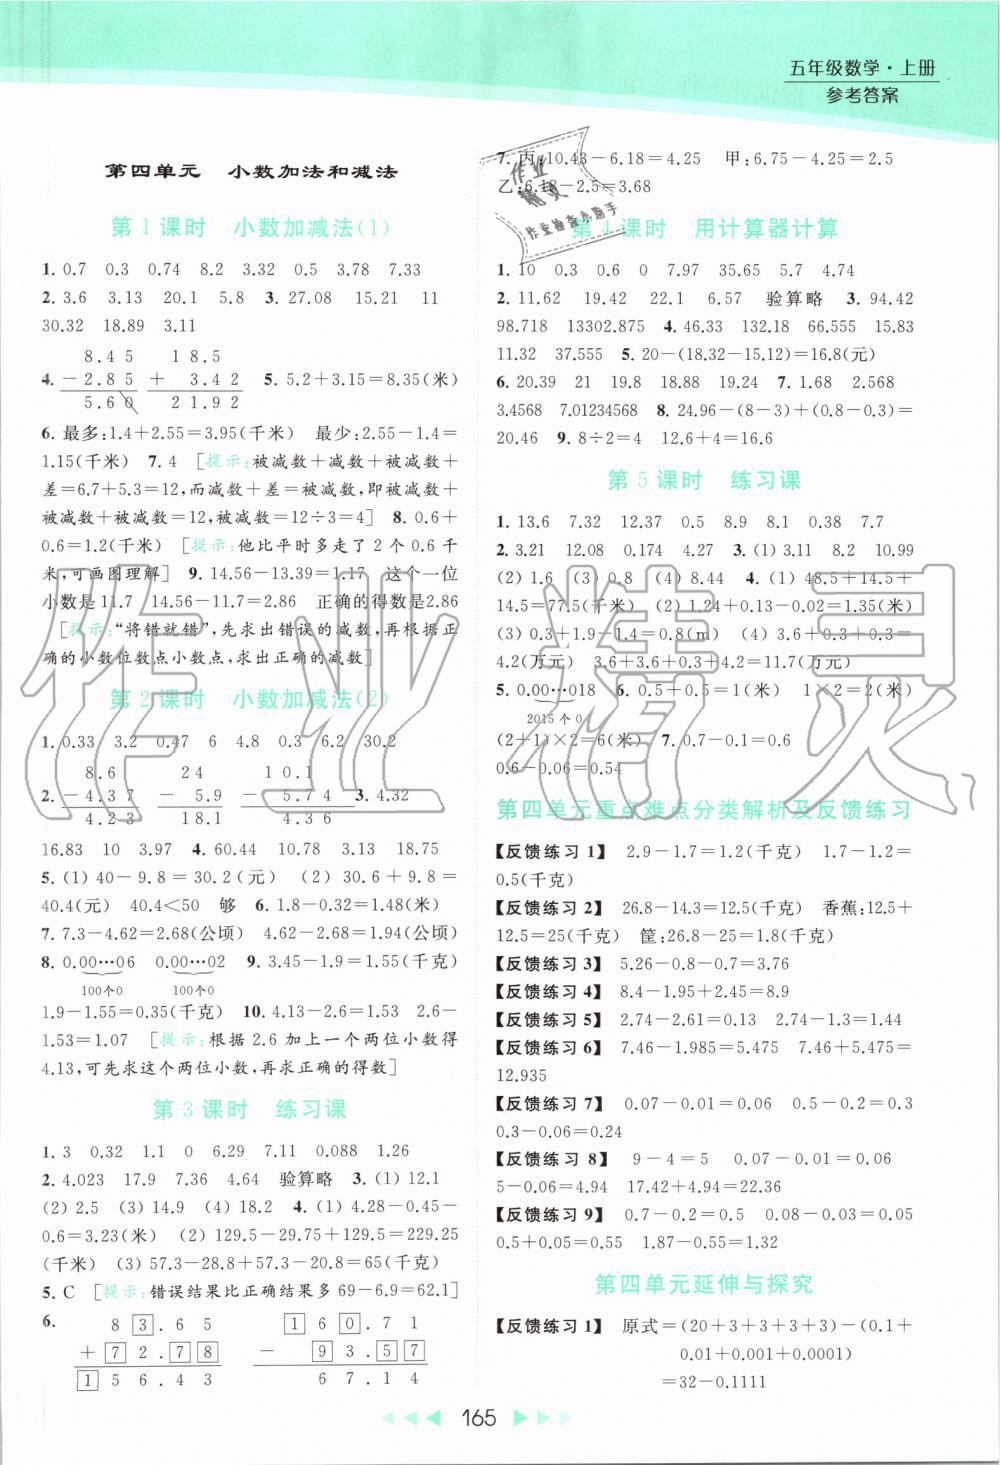 五年级数学·上册
参考答案
第四单元 小数加法和减法
第1课时 小数加减法(1)
1. 0.7 0.3 0.74 8.2 3.32 0.5 3.78 7.33
2. 3.6 3.13 20.1 5.8 3. 27.08 15.21 11
30.32 18.89 3.11
8.45 18.5
4. －2.85 ＋ 3.42 5. 5.2＋3.15＝8.35(米)
5.60 21.92
6. 最多:1.4＋2.55＝3.95(千米) 最少:2.55－1.4＝
1.15(千米) 7. 4 [提示:被减数＋减数＋被减数－
差＝6.7＋5.3＝12,而减数＋差＝被减数,即被减数＋
被减数＋被减数＝12,被减数＝12÷3＝4] 8. 0.6＋
0.6＝1.2(千米) [提示:他比平时多走了2个0.6千
米,可画图理解] 9. 14.56－13.39＝1.17 这个一位
小数是11.7 14.56－11.7＝2.86 正确的得数是2.86
[提示:“将错就错”,先求出错误的减数,再根据正
确的小数位数点小数点,求出正确的减数]
第2课时 小数加减法(2)
1. 0.33 3.2 0.47 6 4.8 0.3 6.2 30.2
8.6 24 10.1
2. －4.37 － 5.9 － 5.74 3. 4.32
4.23 18.1 4.36
16.83 10 3.97 4. 60.44 10.78 3.13 18.75
5. (1) 40－9.8＝30.2(元) (2) 30.6＋9.8＝
40.4(元) 40.4＜50 够 6. 1.8－0.32＝1.48(米)
7. 7.3－4.62＝2.68(公顷) 4.62－2.68＝1.94(公顷)
8. 0.00…06 0.00…02 9. 3.45－1.9＝1.55(千克)
100个0 100个0
1.9－1.55＝0.35(千克) 10. 4.13－2.6＝1.53 2.6－
1.53＝1.07 [提示:根据2.6加上一个两位小数得
4.13,可先求这个两位小数,再求正确的得数]
第3课时 练习课
1. 3 0.32 1.1 0 6.29 7.11 0.088 1.26
2. 4.023 17.9 7.36 4.64 验算略 3. (1) 12.1
(2) 2.5 (3) 14.9 (4) 18.2 4. (1) 4.28－0.45－
0.6＝3.23(米) (2) 129.5－29.75＋129.5＝229.25
(千米) (3) 57.3－28.8＋57.3－20.8＝65(千克)
5. C [提示:错误结果比正确结果多69－6.9＝62.1]
6. 83.65 160.71
＋72.78 － 93.57
156.43 67.14
7. 丙:10.43－6.18＝4.25 甲:6.75－4.25＝2.5
乙:6.18－2.5＝3.68
第4课时 用计算器计算
1. 10 0.3 0.6 0 7.97 35.65 5.7 4.74
2. 11.62 19.42 22.1 6.57 验算略 3. 94.42
98.718 13302.875 4. 46.33 132.18 66.555 15.83
11.32 37.555 5. 20－(18.32－15.12)＝16.8(元)
6. 20.39 21 19.8 18.88 19.24 7. 1.68 2.568
3.4568 7.01234568 8. 24.96－(8－3)＋(0.8－0.3)＝
20.46 9. 8÷2＝4 12.6＋4＝16.6
第5课时 练习课
1. 13.6 7.32 12.37 0.5 8.9 8.1 0.38 7.7
2. 3.21 12.08 0.174 4.27 3. (1) 3.11 8.2 10.99
(2) 1.6 (3) 0.8 (4) 8.44 4. (1) 48.5＋14.5＋
14.5＝77.5(千米) (2) 1.24＋0.13－0.02＝1.35(米)
(3) 0.3＋1.9－1.4＝0.8(m) (4) 3.6＋0.3＋0.3＝
4.2(万元) 3.6＋3.6＋0.3＋4.2＝11.7(万元)
5. 0.00…018 6. 0.5＋0.5＝1(米) 1×2＝2(米)
2015个0
(2＋1)×2＝6(米) 7. 0.7－0.1＝0.6
0.6－0.06＝0.54
第四单元重点难点分类解析及反馈练习
【反馈练习1】 2.9－1.7＝1.2(千克) 1.7－1.2＝
0.5(千克)
【反馈练习2】 26.8－14.3＝12.5(千克) 香蕉:12.5＋
12.5＝25(千克) 筐:26.8－25＝1.8(千克)
【反馈练习3】 5.26－0.8－0.7＝3.76
【反馈练习4】 8.4－1.95＋2.45＝8.9
【反馈练习5】 2.74－2.61＝0.13 2.74－1.3＝1.44
【反馈练习6】 7.46－1.985＝5.475 7.46＋5.475＝
12.935
【反馈练习7】 0.07－0.01＝0.06 0.5－0.2＝0.3
0.3－0.06＝0.24
【反馈练习8】 9－4＝5 0.07－0.01＝0.06
5－0.06＝4.94 17.42＋4.94＝22.36
【反馈练习9】 0.7－0.2＝0.5 0.08－0.03＝0.05
0.5＋0.05＝0.55 1.87－0.55＝1.32
第四单元延伸与探究
【反馈练习1】 原式＝(20＋3＋3＋3＋3)－(0.1＋
0.01＋0.001＋0.0001)
＝32－0.1111
165
作业
精灵
作业检查小助手
作业精灵